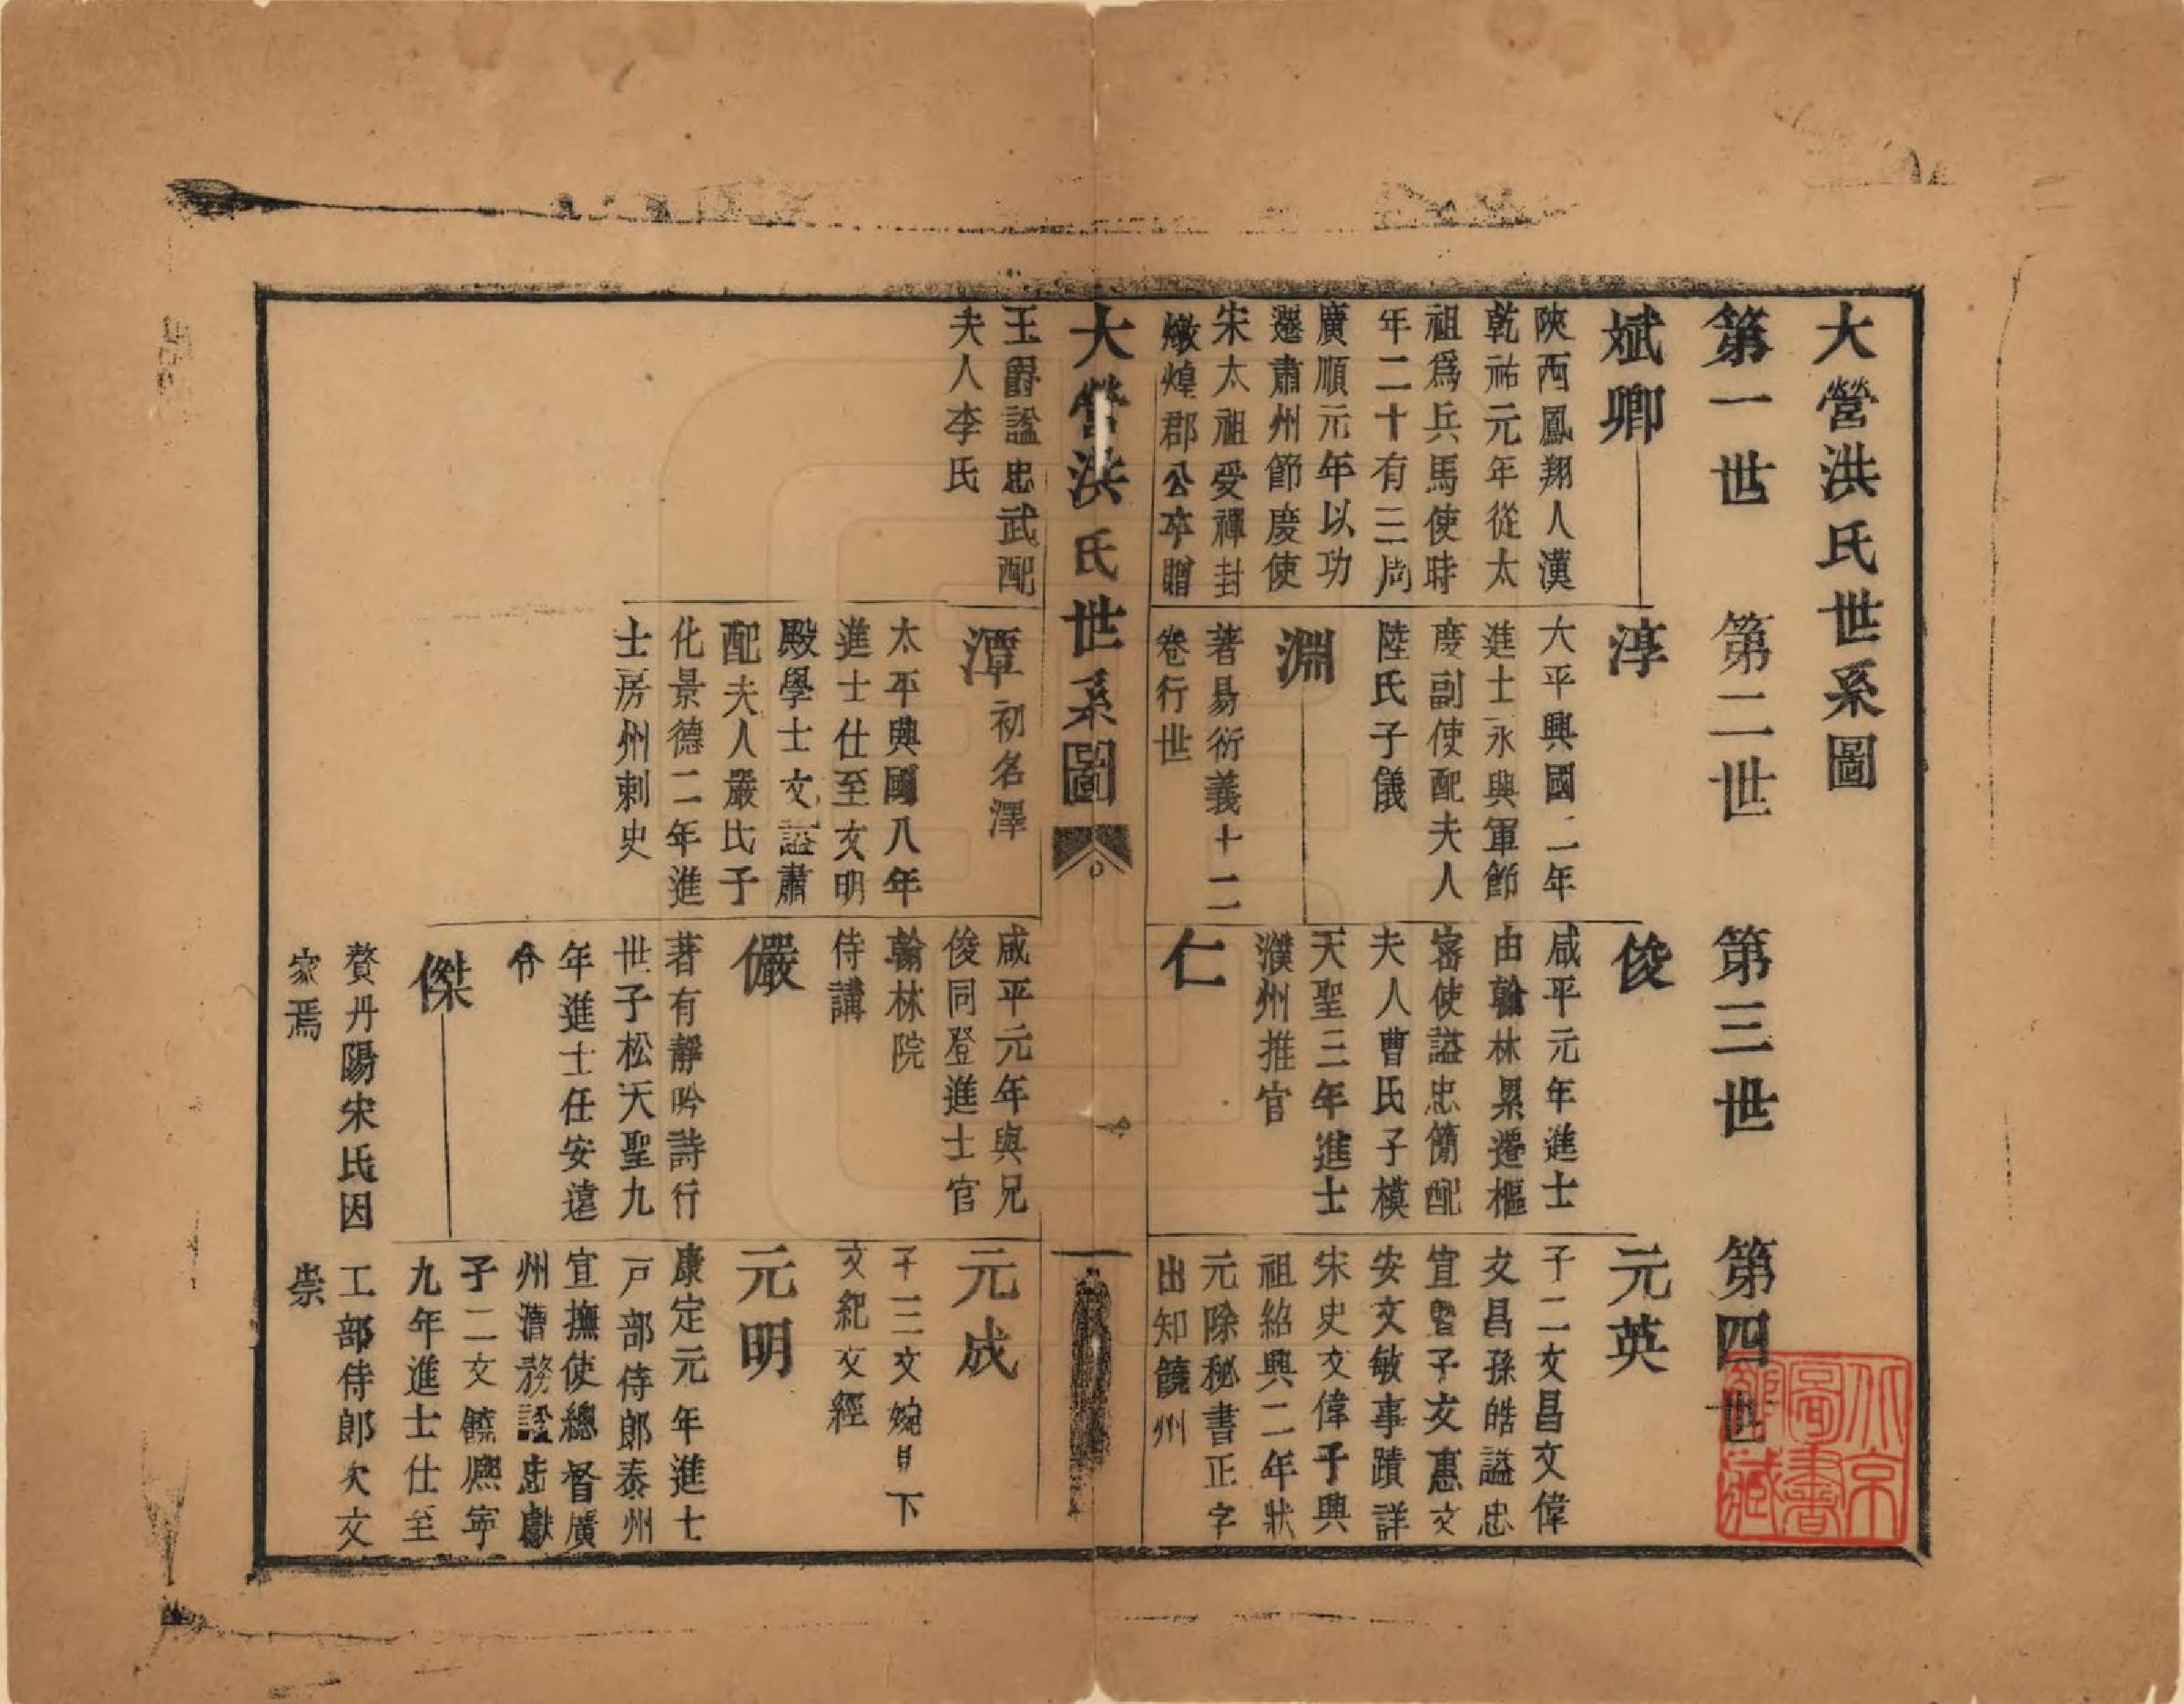 大營洪氏世系圖
第一世
第二世
第三世
第四世
斌卿
陝西鳳翔人漢
乾祐元年從太
祖爲兵馬使時
年二十有三周
廣順元年以功
遷肅州節度使
宋太祖受禪封
燉煌郡公卒贈
淳
大平興國二年
進士永興軍節
度副使配夫人
陸氏子儀
淵
著易衍義十二
卷行世
俊
咸平元年進士
由翰林累遷樞
密使謚忠簡配
夫人曹氏子模
天聖三年進士
濮州推官
仁
元英
子二文昌文偉
文昌孫皓謚忠
宣皓子文惠文
安文敏事蹟詳
宋史文偉子興
祖紹興二年狀
元除秘書正字
出知饒州
大營洪氏世系圖
一
王爵謚忠武配
夫人李氏
潭初名澤
太平興國八年
進士仕至文明
殿學士文謚肅
配夫人嚴氏子
化景德二年進
士房州刺史
咸平元年與兄
俊同登進士官
翰林院
侍講
儼
著有靜吟詩行
世子松天聖九
年進士任安遠
令
傑
贅丹陽宋氏因
家焉
元成
子三文婉早下
文紀文經
元明
康定元年進士
戸部侍郎泰州
宣撫使總督廣
州漕務謚忠獻
子二文饒熈寕
九年進士仕至
工部侍郎次文
崇
北京
圖書
館藏